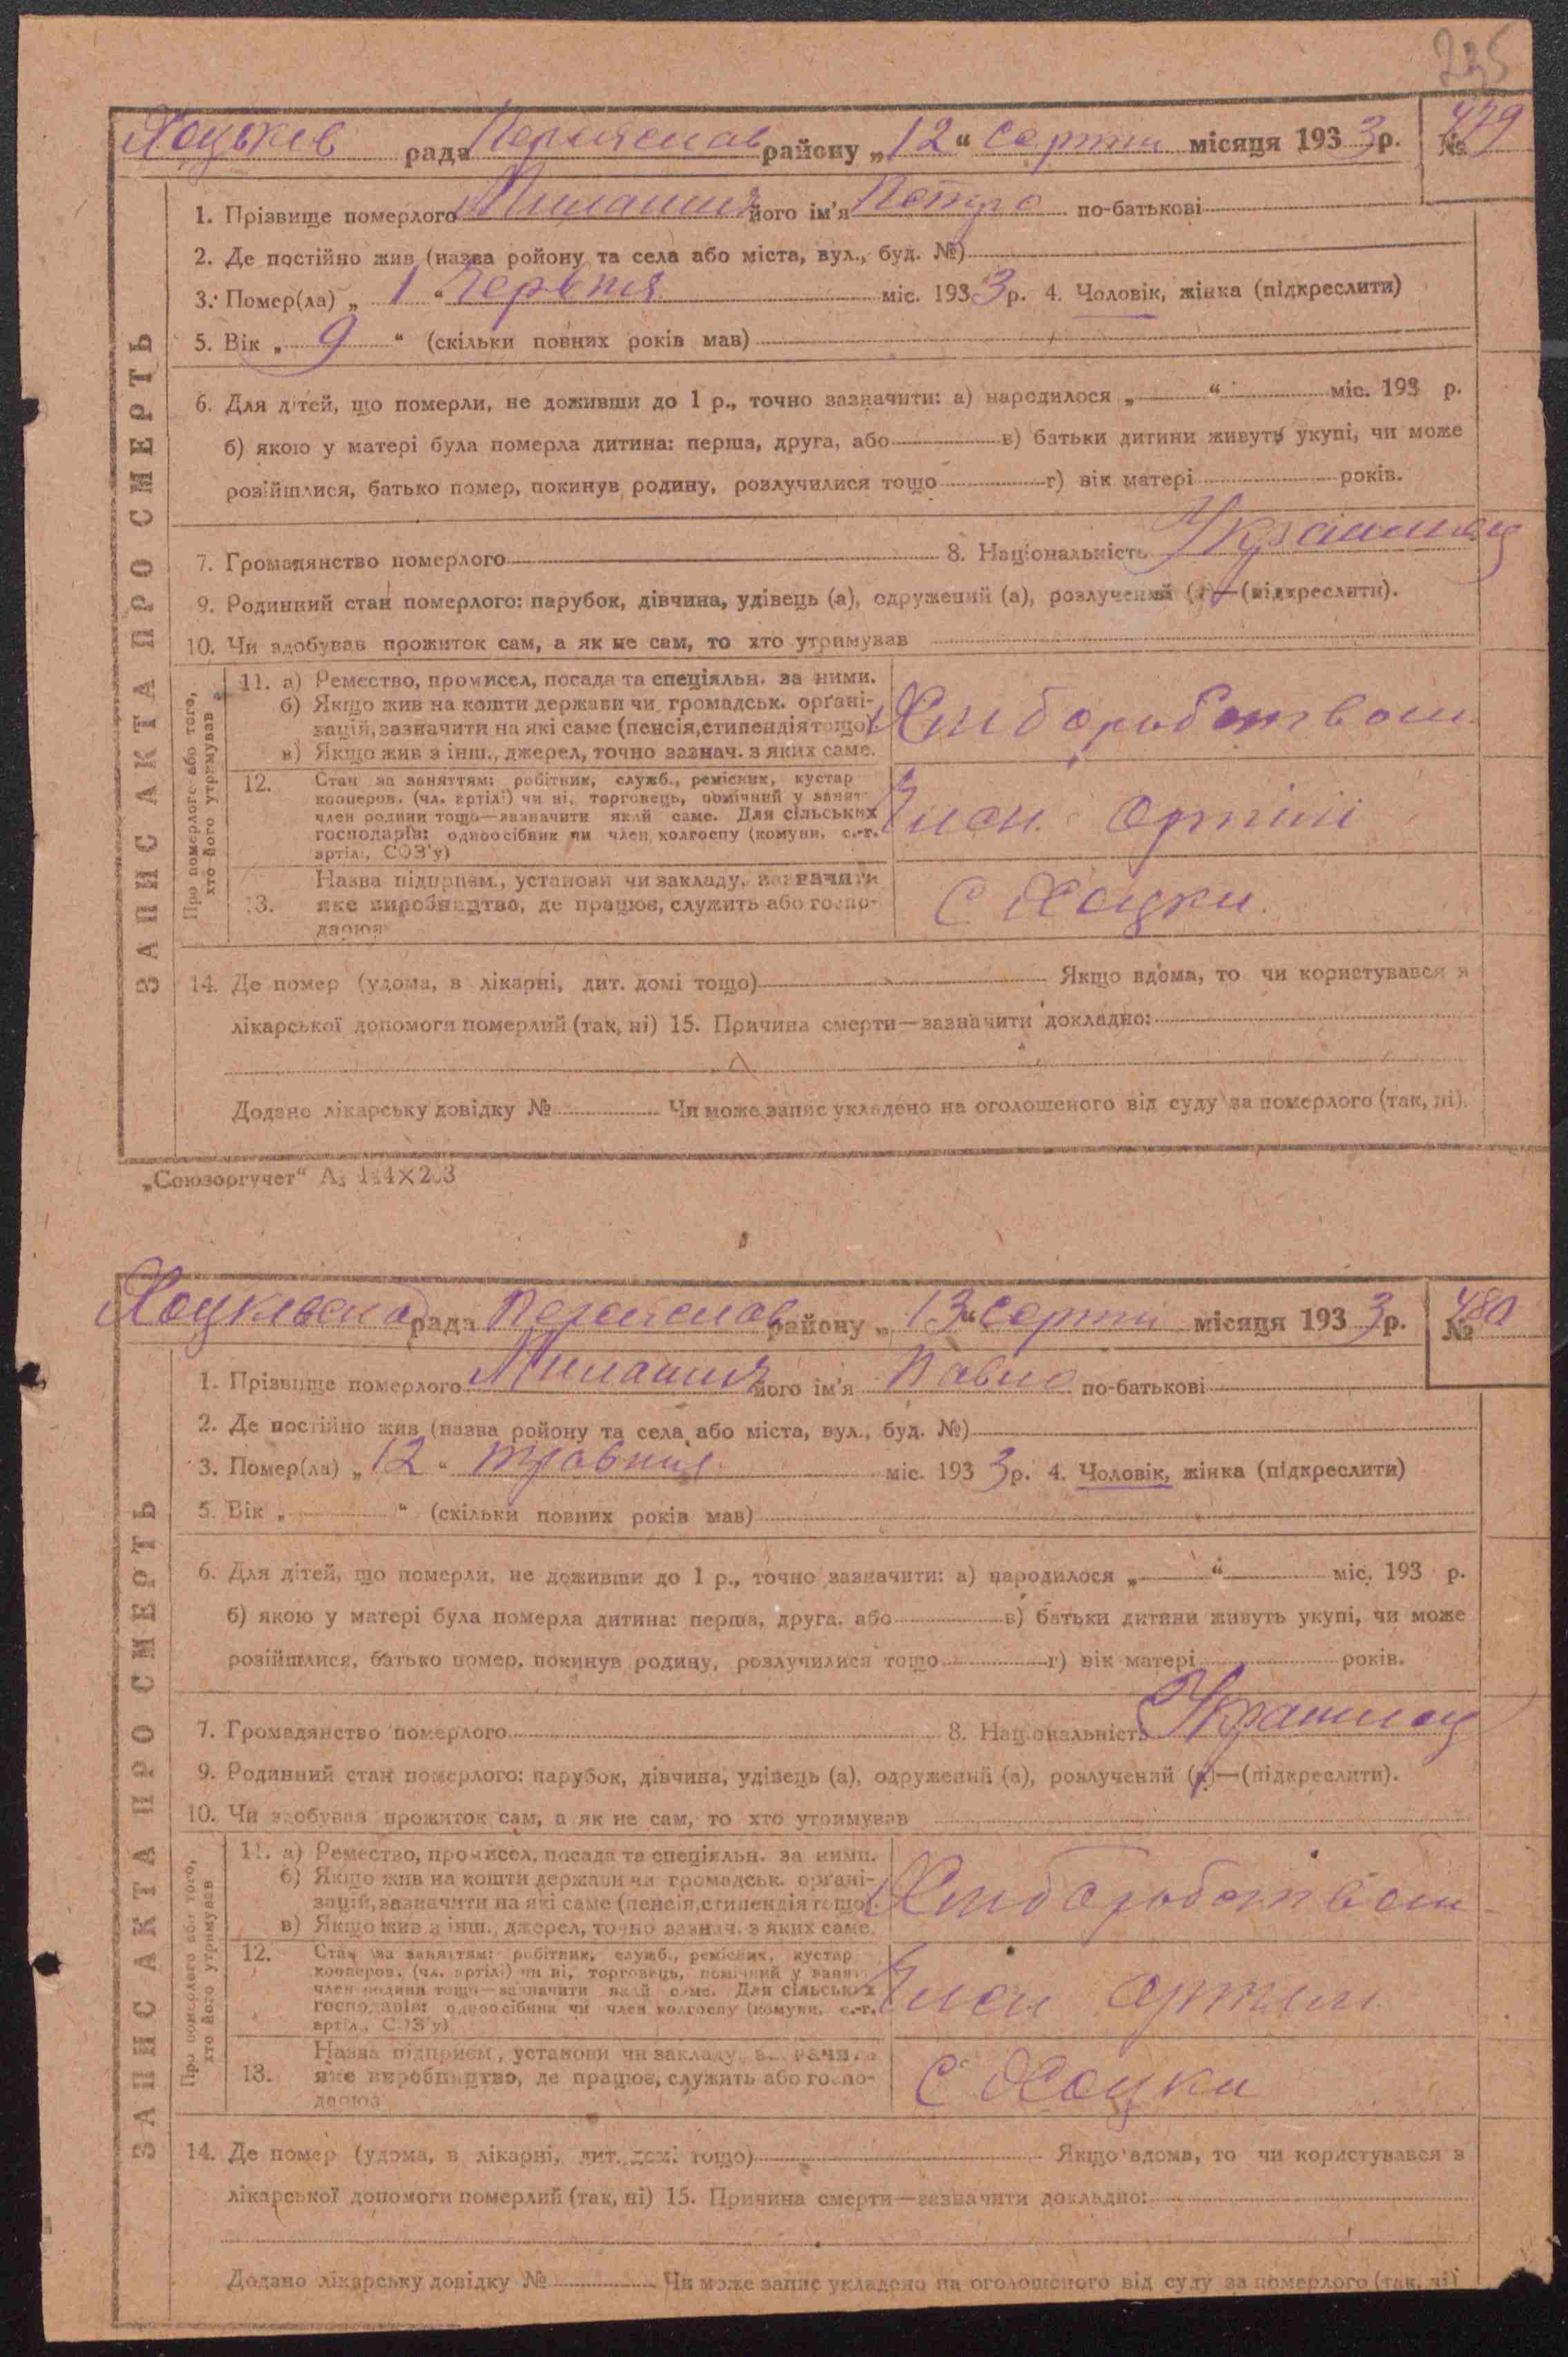 235
Хоцьків рада Переяслав району „12“ Серпня місяця 1933р. № 479
1. Прізвище померлого його ім'я Петро по-батькові
2. Де постійно жив (назва ройону та села або міста, вул., буд. №)
3. Помер(ла) „1“ Червня міс. 1933р. 4. Чоловік, жінка (підкреслити)
5. Вік „9“ (скільки повних років мав)
6. Для дітей, що померли, не доживши до 1 р., точно зазначити: а) народилося „ “ міс. 193 р.
б) якою у матері була померла дитина: перша, друга, або в) батьки дитини живуть укупі, чи може
розійшлися, батько помер, покинув родину, розлучилися тощо г) вік матері років.
7. Громадянство померлого 8. Національність Українец
9. Родинний стан померлого: парубок, дівчина, удівець (а), одружений (а), розлучений (а)—(підкреслити).
10. Чи здобував прожиток сам, а як не сам, то хто утримував
ЗАПИС АКТА ПРО СМЕРТЬ
Про померлого або того, хто його утримував
11. а) Ремество, промисел, посада та спеціяльн. за ними.
б) Якщо жив на кошти держави чи громадськ. орґані-
зацій, зазначити на які саме (пенсія, стипендія тощо)
в) Якщо жив з інш., джерел, точно зазнач. з яких саме.
Хліборобством
12. Стан за заняттям: робітник, служб., ремісник, кустар
кооперов. (чл. артілі) чи ні, торговець, помічний у занят.
член родини тощо—зазначити який саме. Для сільських
господарів: одноосібник чи член колгоспу (комуни, с.-г.
артілі, СОЗ'у)
Член Артілі
13. Назва підприєм., установи чи закладу, зазначити
яке виробництво, де працює, служить або госпо-
дарює
С Хоцки.
14. Де помер (удома, в лікарні, дит. домі тощо) Якщо вдома, то чи користувався з
лікарської допомоги померлий (так, ні) 15. Причина смерти—зазначити докладно:
Додано лікарську довідку № Чи може запис укладено на оголошеного від суду за померлого (так, ні).
„Союзоргучет“
Хоцківська рада Переяслав району „13“ Серпня місяця 1933р. № 480
1. Прізвище померлого його ім'я Павло по-батькові
2. Де постійно жив (назва ройону та села або міста, вул., буд. №)
3. Помер(ла) „12“ травня міс. 1933р. 4. Чоловік, жінка (підкреслити)
5. Вік „ “ (скільки повних років мав)
6. Для дітей, що померли, не доживши до 1 р., точно зазначити: а) народилося „ “ міс. 193 р.
б) якою у матері була померла дитина: перша, друга, або в) батьки дитини живуть укупі, чи може
розійшлися, батько помер, покинув родину, розлучилися тощо г) вік матері років.
7. Громадянство померлого 8. Національність Українец
9. Родинний стан померлого: парубок, дівчина, удівець (а), одружений (а), розлучений (а)—(підкреслити).
10. Чи здобував прожиток сам, а як не сам, то хто утримував
ЗАПИС АКТА ПРО СМЕРТЬ
Про померлого або того, хто його утримував
11. а) Ремество, промисел, посада та спеціяльн. за ними.
б) Якщо жив на кошти держави чи громадськ. орґані-
зацій, зазначити на які саме (пенсія, стипендія тощо)
в) Якщо жив з інш., джерел, точно зазнач. з яких саме.
Хліборобством
12. Стан за заняттям: робітник, служб., ремісник, кустар
кооперов. (чл. артілі) чи ні, торговець, помічний у занят.
член родини тощо—зазначити який саме. Для сільських
господарів: одноосібник чи член колгоспу (комуни, с.-г.
артіл., СОЗ'у)
Член Артели
13. Назва підприєм., установи чи закладу, зазначити
яке виробництво, де працює, служить або госпо-
дарює
С Хоцки
14. Де помер (удома, в лікарні, дит. домі тощо) Якщо вдома, то чи користувався з
лікарської допомоги померлий (так, ні) 15. Причина смерти—зазначити докладно:
Додано лікарську довідку № Чи може запис укладено на оголошеного від суду за померлого (так, ні)